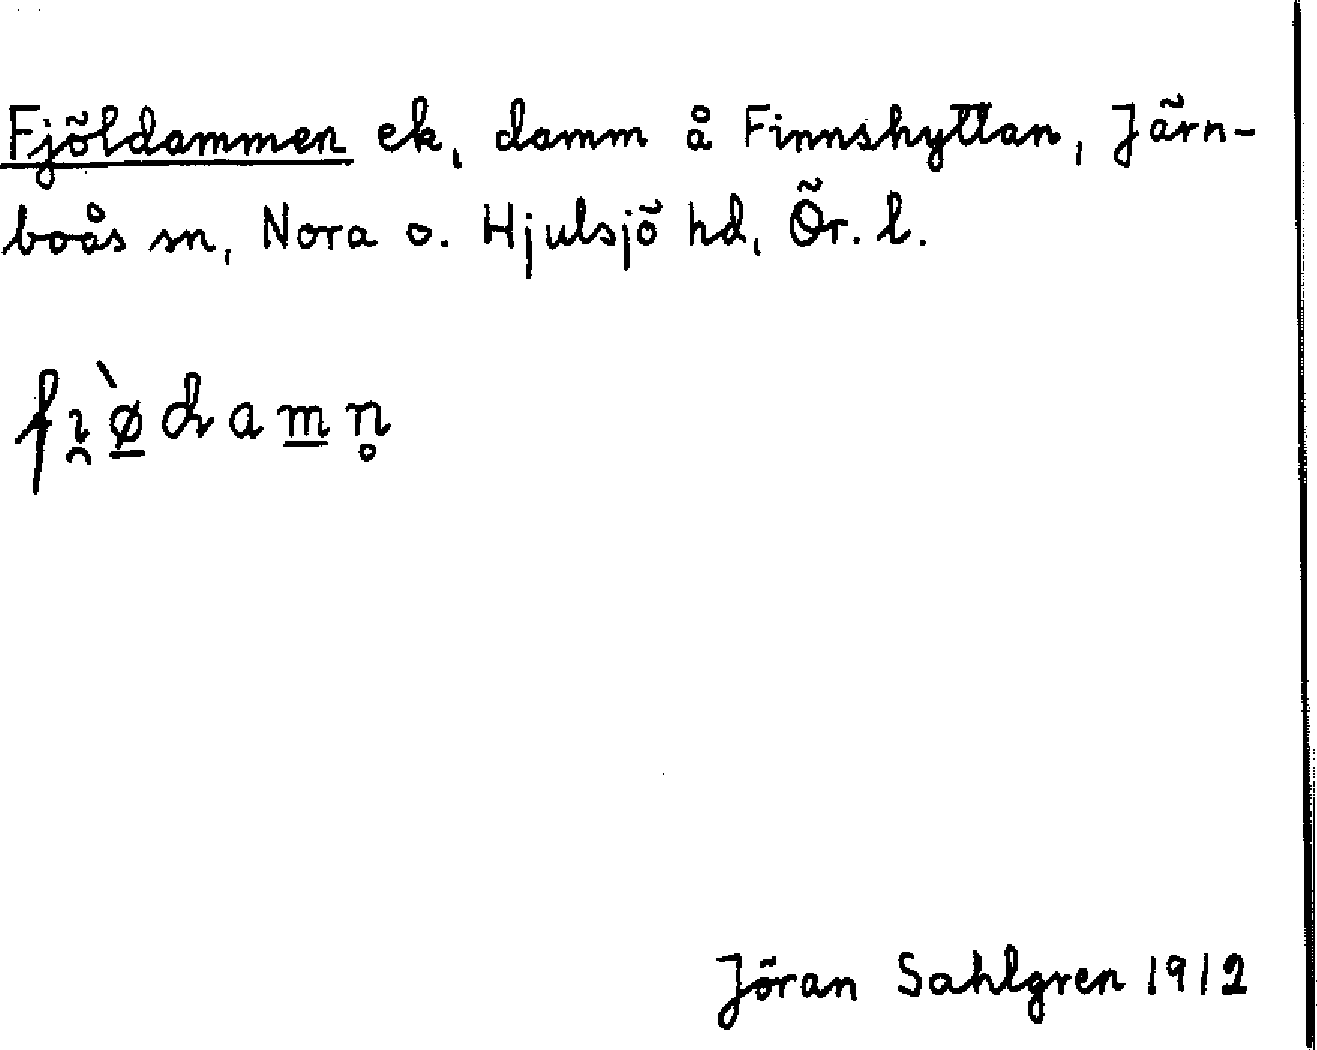 Fjöldammen ek, damm å Finnshyttan, Järn-
boås sn, Nora o. Hjulsjö hd, Ör. l.
fı̯ø̲̀dam̲n̥
Jöran Sahlgren 1912